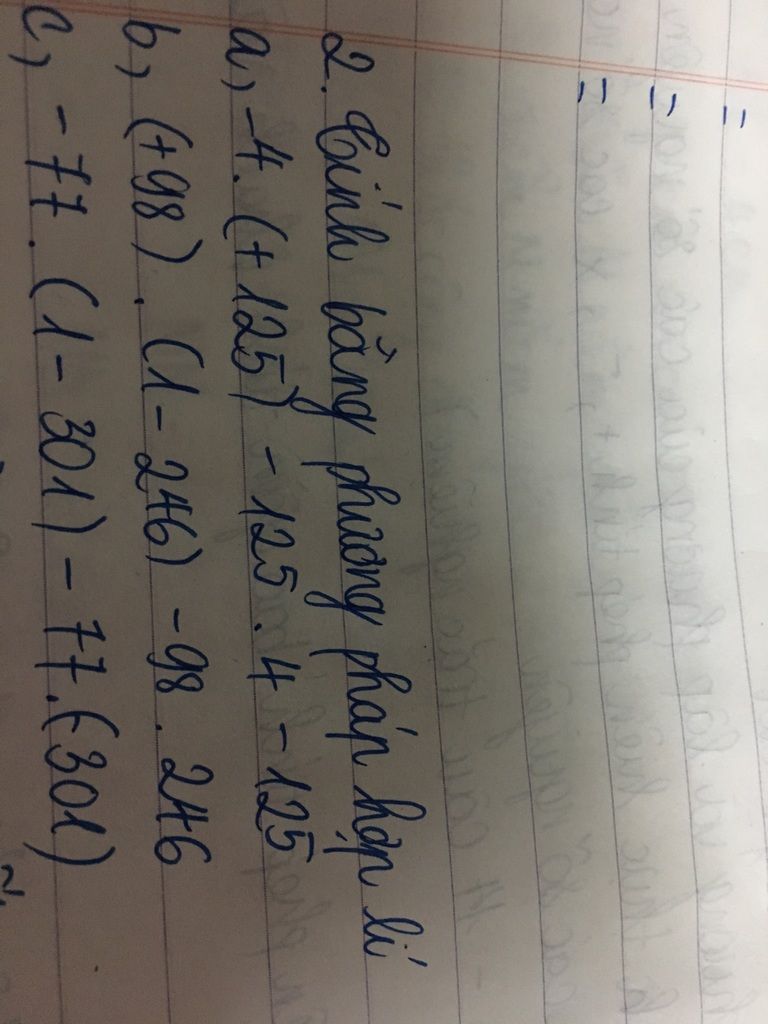 =
=
=
2. Tính bằng phương pháp hợp lí
a, -4. (+125) - 125. 4 - 125
b, (+98) . (1 - 246) - 98. 246
c, -77. (1 - 301) - 77. (-301)